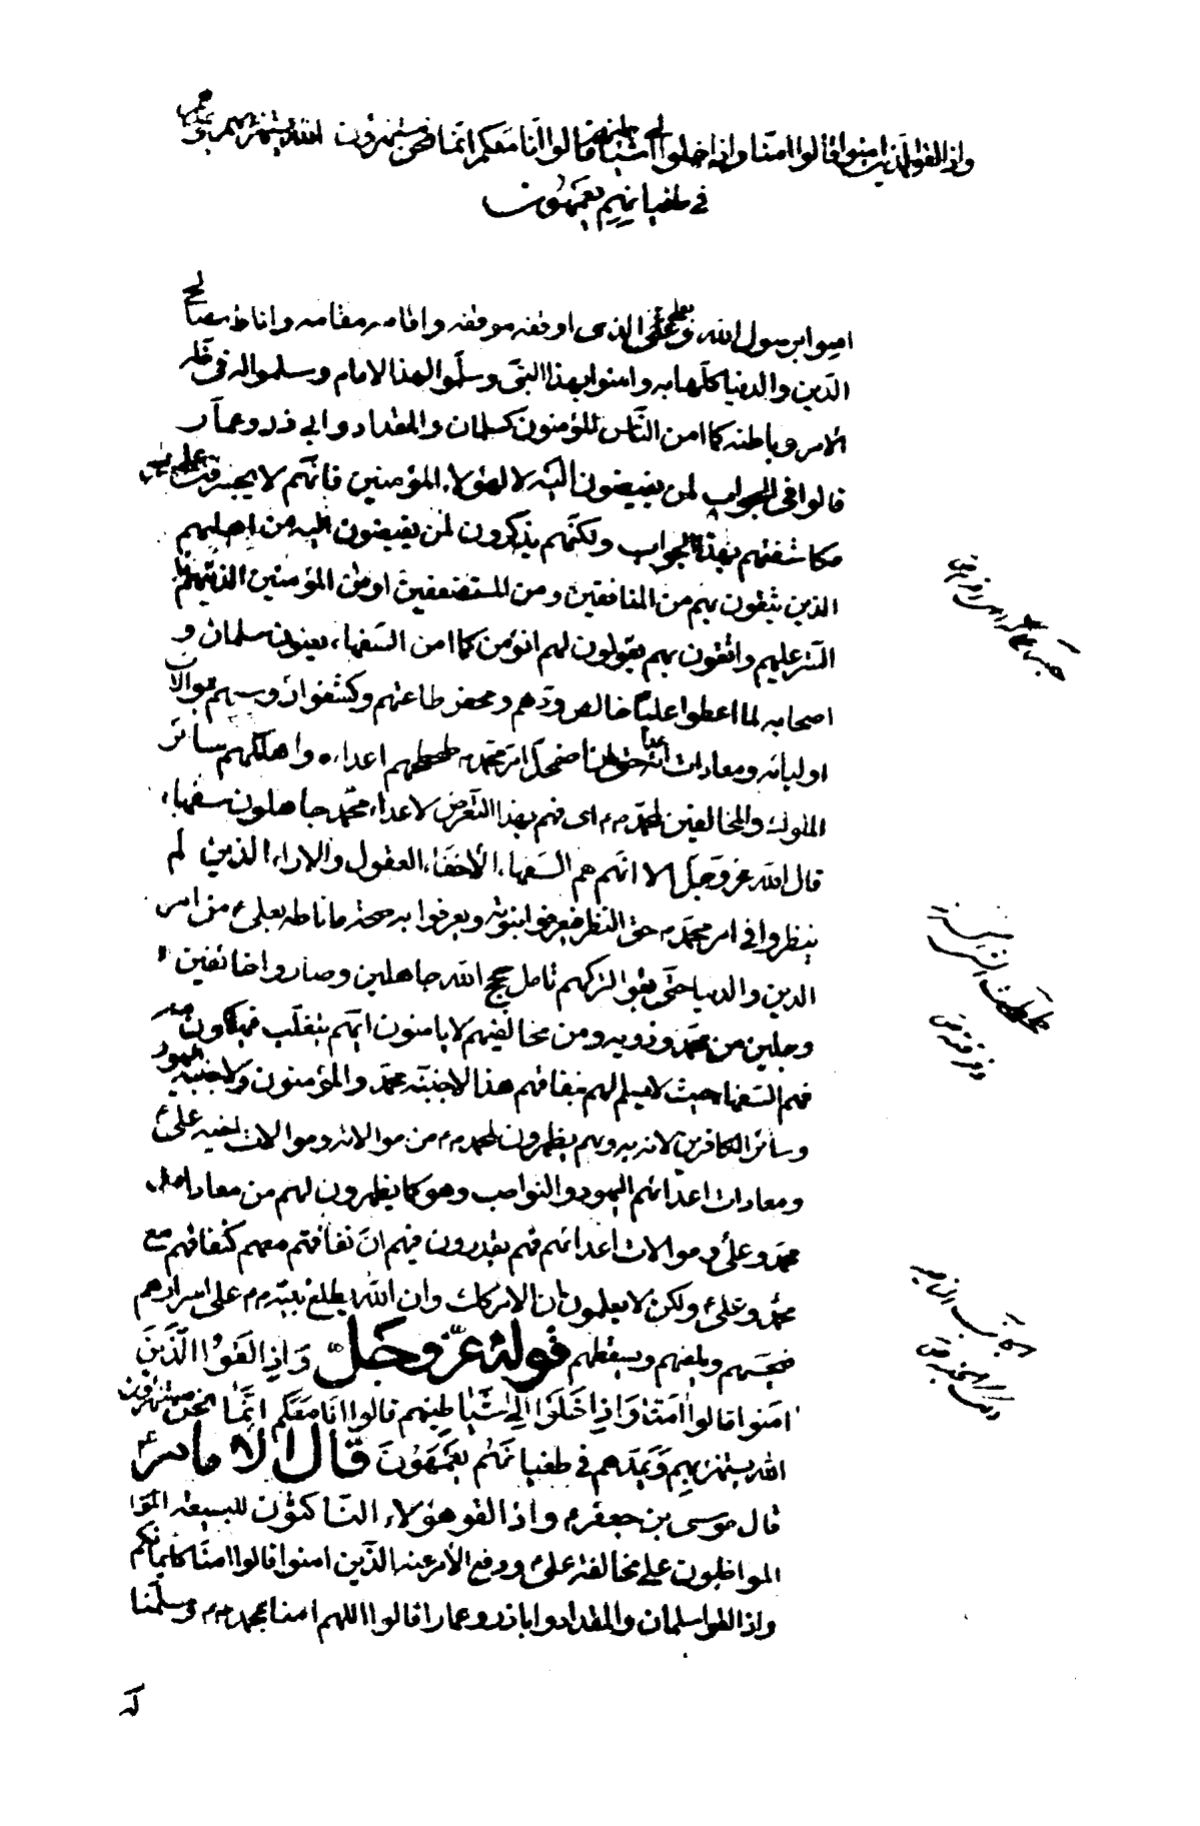 واذا لقوا الذين امنوا قالوا امنا واذا خلوا الى شياطينهم قالوا انا معكم انما نحن مستهزؤن الله يستهزئ بهم ويمدهم
في طغيانهم يعمهون
امنوا برسول الله وبعلي الذى اوقفه موقفه واقامه مقامه واناط مصالح
الدين والدنيا كلها به وامنوا بهذا النبى وسلموا لهذا الامام وسلموا له فى ظاهر
الامر وباطنه كما امن الناس المؤمنون كسلمان والمقداد وابي ذر وعمار
قالوا فى الجواب لمن يفيضون اليه لا لهؤلاء المؤمنين فانهم لا يجسرون على
مكاشفتهم بهذا الجواب ولكنهم يذكرون لمن يفيضون اليه من اهليهم
الذين يثقون بهم من المنافقين ومن المستضعفين او من المؤمنين الذين هم
الستر عليهم واثقون بهم يقولون لهم انؤمن كما امن السفهاء يعنون سلمان و
اصحابه لما اعطوا عليا خالص ودهم ومحض طاعتهم وكشفوا رؤسهم بموالات
اوليائه ومعادات اعدائه حتى اذا اضمحل امر محمد طحطحهم اعداؤه واهلكهم سائر
الملوك والمخالفين لمحمد اى فهم بهذا التعرض لاعداء محمد جاهلون سفهاء
قال الله عز وجل الا انهم هم السفهاء الاخفاء العقول والاراء الذين لم
ينظروا في امر محمد حق النظر فيعرفوا نبوته ويعرفوا به صحة ما ناطه بعلى من امر
الدين والدنيا حتى بقوا لتركهم تامل حجج الله جاهلين وصاروا خائفين
وجلين من محمد وذويه ومن مخالفيهم لا يامنون ايهم يغلب فيهلكون معه
فهم السفهاء حيث لا يسلم لهم بنفاقهم هذا لا محبة محمد والمؤمنون ولا محبة اليهود
وسائر الكافرين لانه به وبهم يظهرون لمحمد من موالاته وموالات اخيه علي
ومعادات اعدائهم اليهود والنواصب وهو كما يظهرون لهم من معادات
محمد وعلى وموالات اعدائهم فهم يقدرون فيهم ان نفاقهم معهم كنفاقهم مع
محمد وعلى ولكن لا يعلمون ان الامر كذلك وان الله يطلع نبيه على اسرارهم
فيخسهم ويلعنهم ويسقطهم قوله عز وجل واذا لقوا الذين
امنوا قالوا امنا واذا خلوا الى شياطينهم قالوا انا معكم انما نحن مستهزؤن
الله يستهزئ بهم ويمدهم في طغيانهم يعمهون قال الامام
قال موسى بن جعفر واذا لقوا هؤلاء الناكثون للبيعة
المواطبون على مخالفة على ودفع الامر عنه الذين امنوا قالوا امنا كايمانكم
واذا لقوا سلمان والمقداد واباذر وعمار قالوا اللهم امنا بمحمد وسلمنا
له